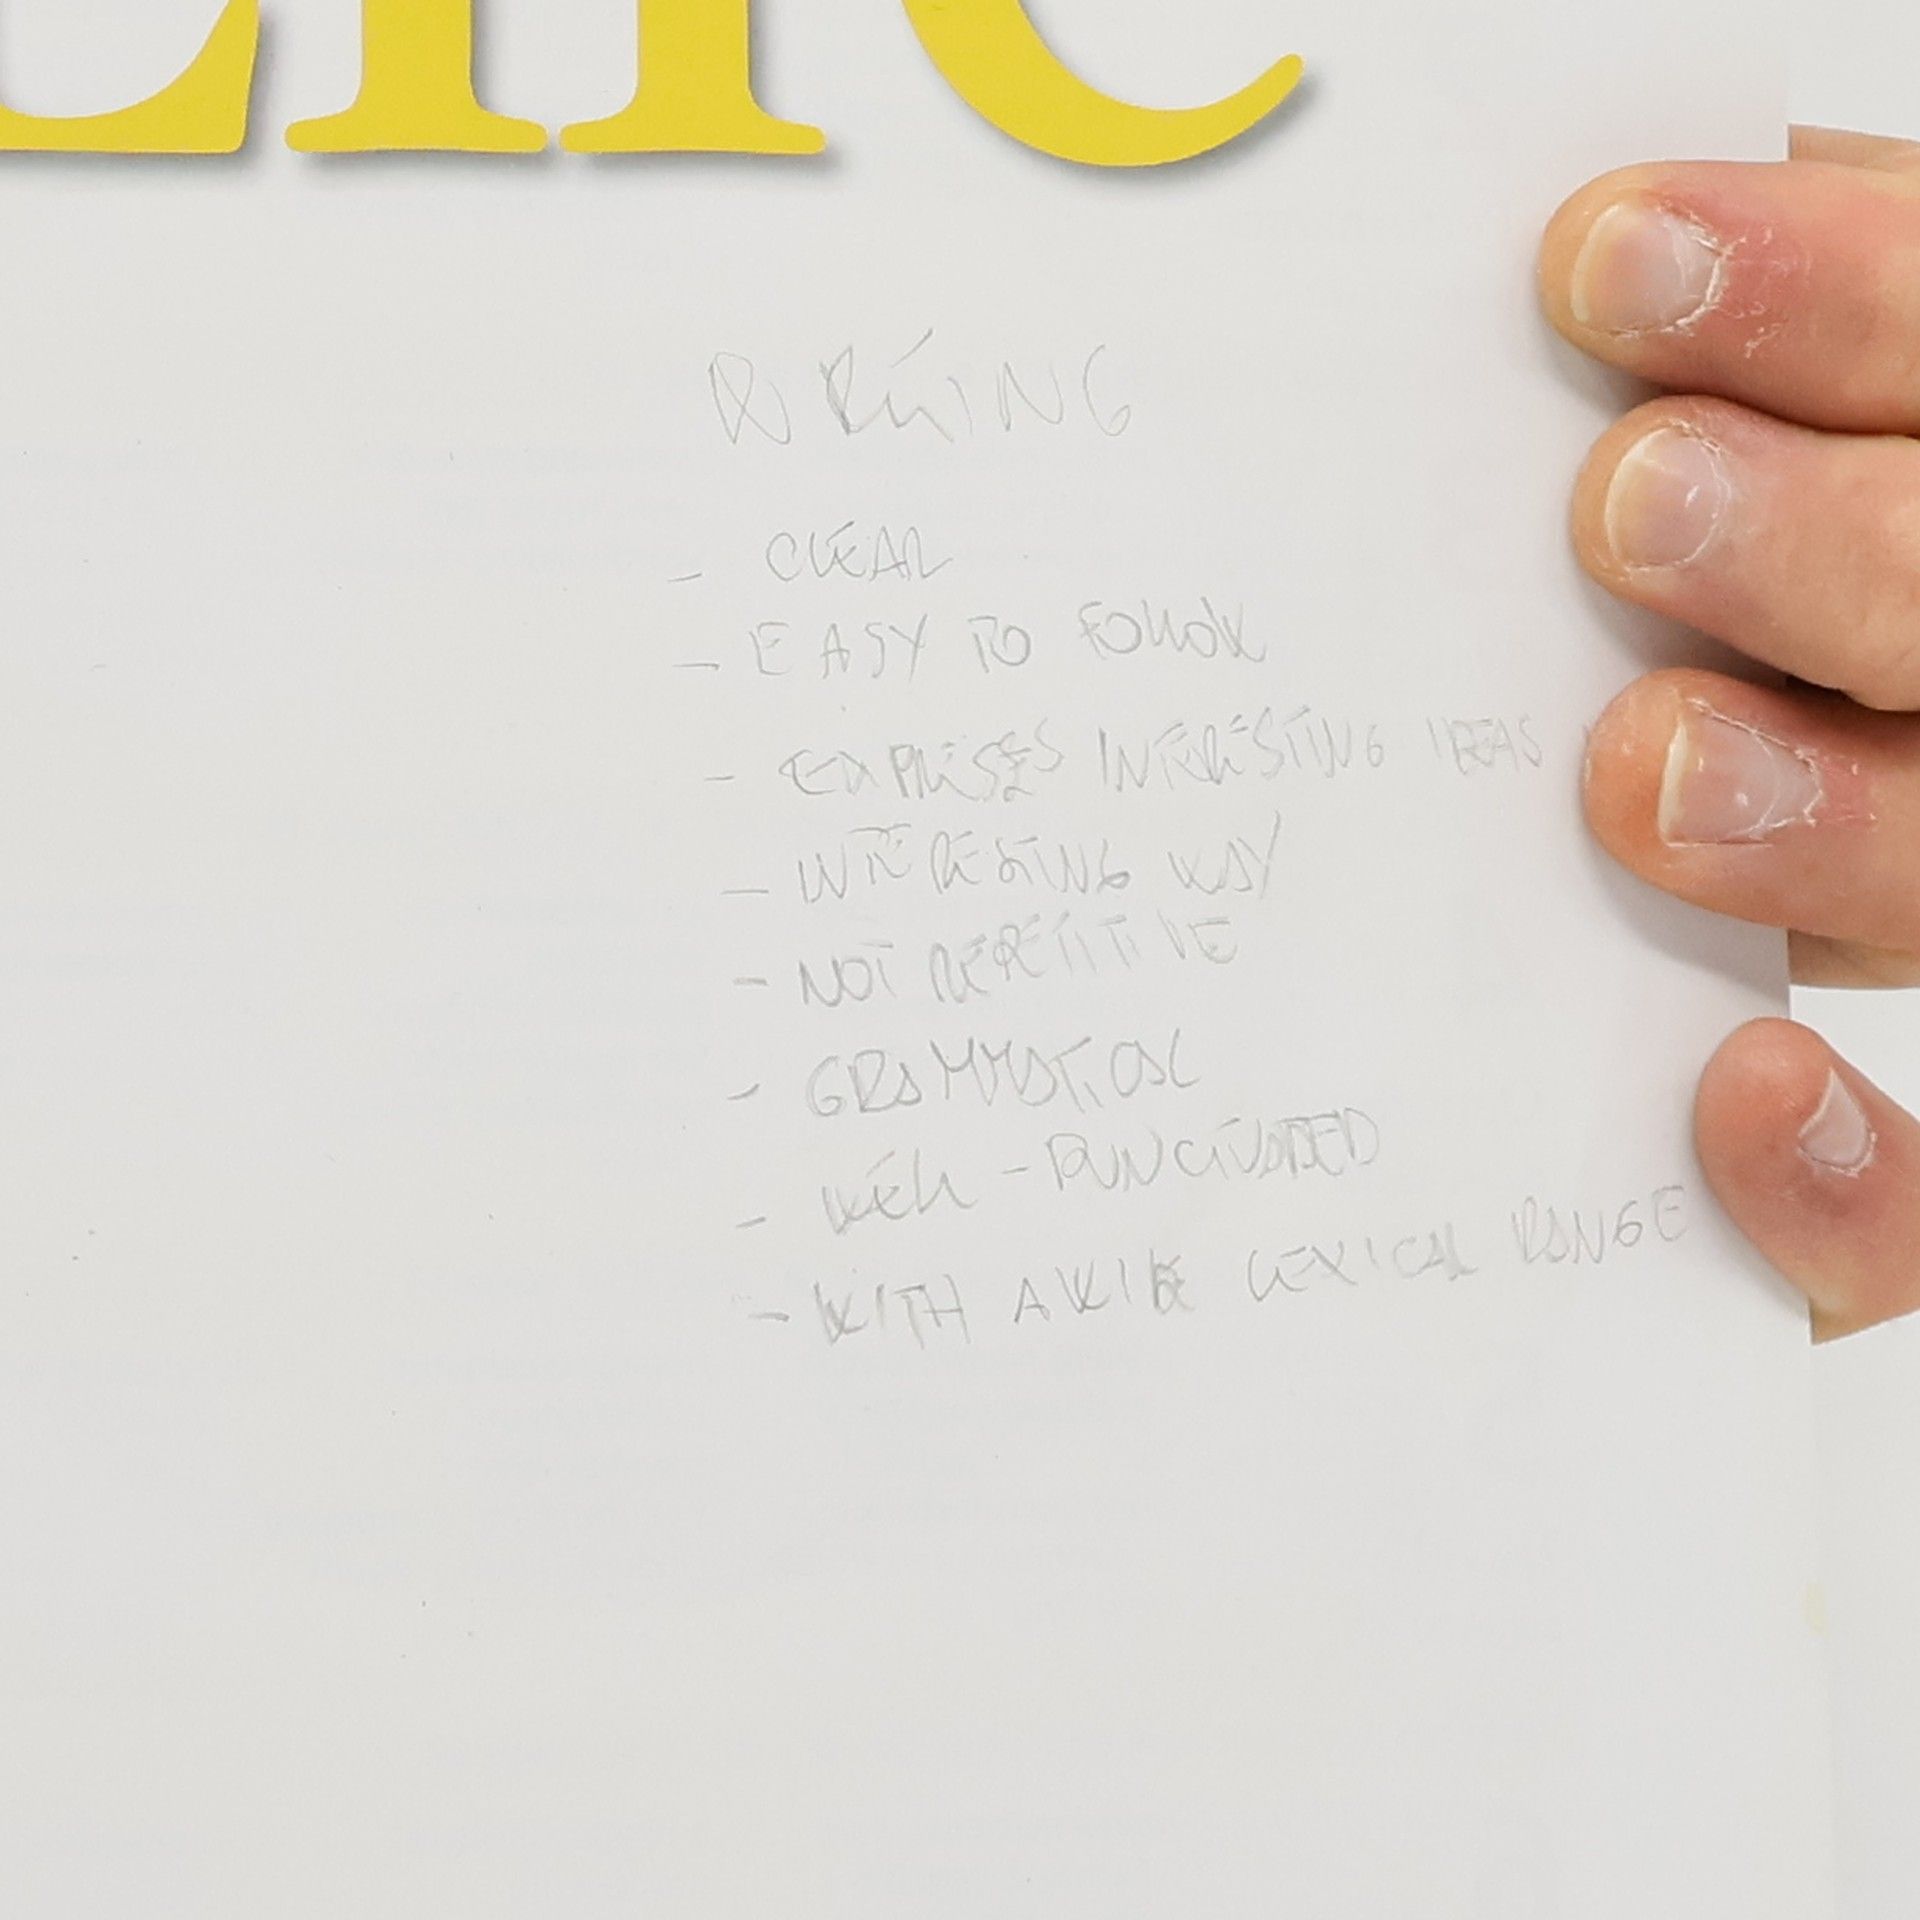 WRITING
- CLEAR
- EASY TO FOLLOW
- EXPRESSES INTERESTING IDEAS
- INTERESTING WAY
- NOT REPETITIVE
- GRAMMATICAL
- WELL-PUNCTUATED
- WITH A WIDE LEXICAL RANGE